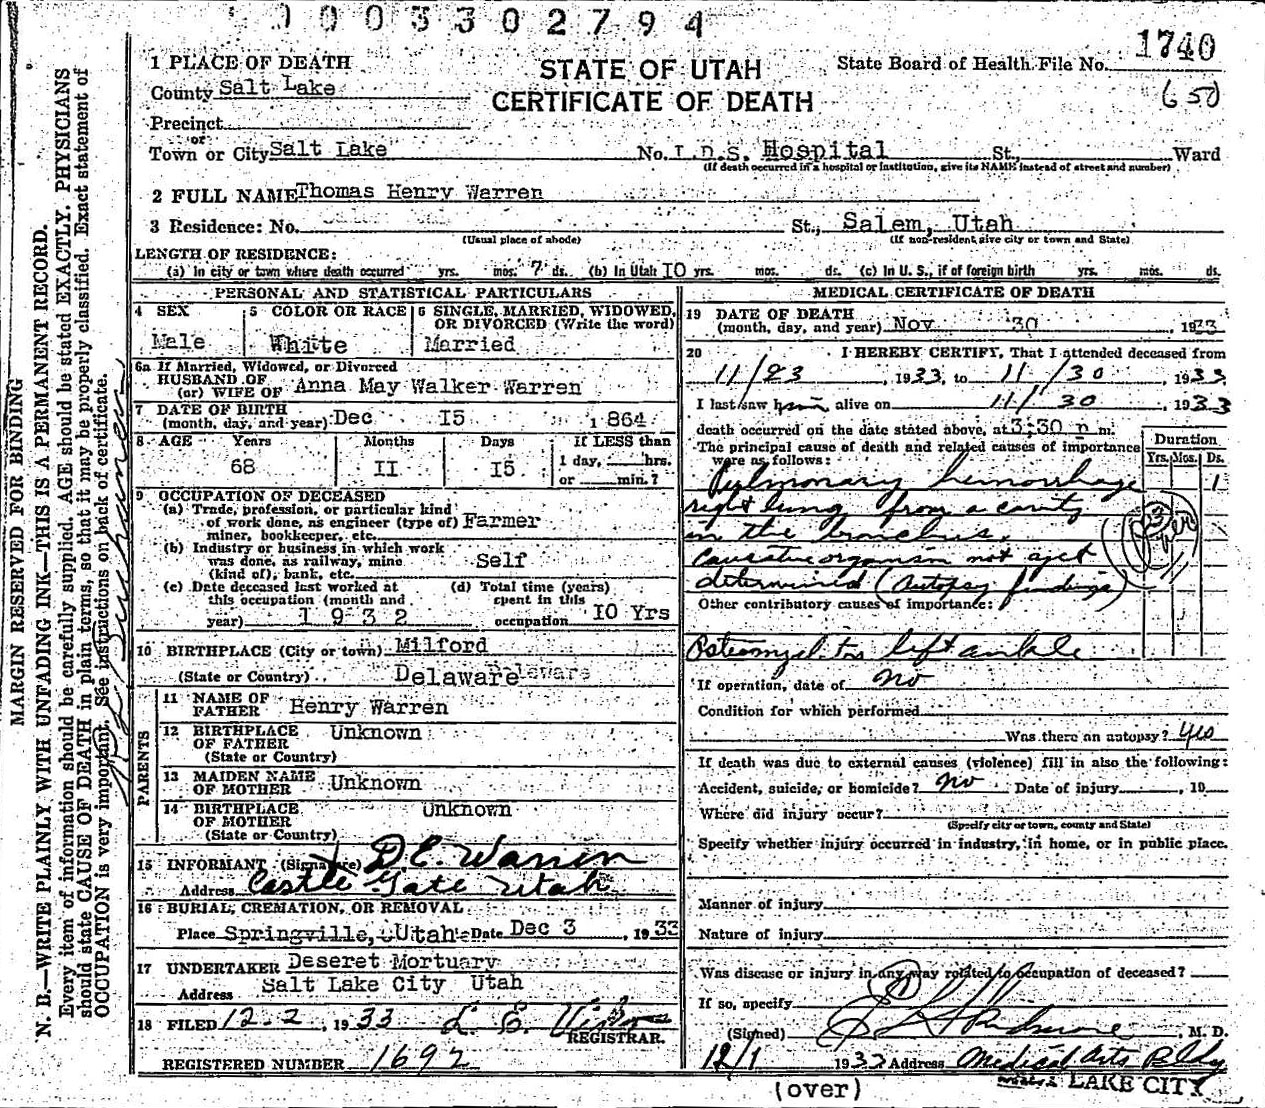 0003302794
1740
650
STATE OF UTAH
CERTIFICATE OF DEATH
State Board of Health File No.
1 PLACE OF DEATH
County Salt Lake
Precinct
or
Town or City Salt Lake No. L.D.S. Hospital St., Ward
(If death occurred in a hospital or institution, give its NAME instead of street and number)
2 FULL NAME Thomas Henry Warren
3 Residence: No. St., Salem, Utah
(Usual place of abode) (If non-resident give city or town and State)
LENGTH OF RESIDENCE:
(a) In city or town where death occurred yrs. mos. 7 ds. (b) In Utah 10 yrs. mos. ds. (c) In U. S., if of foreign birth yrs. mos. ds.
PERSONAL AND STATISTICAL PARTICULARS
4 SEX 5 COLOR OR RACE 6 SINGLE, MARRIED, WIDOWED, OR DIVORCED (Write the word)
Male White Married
6a If Married, Widowed, or Divorced
HUSBAND OF
(or) WIFE OF Anna May Walker Warren
7 DATE OF BIRTH
(month, day, and year) Dec 15 1864
8 AGE Years Months Days If LESS than
68 11 15 1 day, hrs.
or min.?
9 OCCUPATION OF DECEASED
(a) Trade, profession, or particular kind
of work done, as engineer (type of) Farmer
miner, bookkeeper, etc.
(b) Industry or business in which work
was done, as railway, mine Self
(kind of), bank, etc.
(c) Date deceased last worked at (d) Total time (years)
this occupation (month and spent in this
year) 1932 occupation 10 Yrs
10 BIRTHPLACE (City or town) Milford
(State or Country) Delaware Delaware
PARENTS
11 NAME OF
FATHER Henry Warren
12 BIRTHPLACE Unknown
OF FATHER
(State or Country)
13 MAIDEN NAME
OF MOTHER Unknown
14 BIRTHPLACE Unknown
OF MOTHER
(State or Country)
15 INFORMANT (Signature) D E. Warren
Address Castle Gate Utah
16 BURIAL, CREMATION, OR REMOVAL
Place Springville, Utah Date Dec 3, 1933
17 UNDERTAKER Deseret Mortuary
Address Salt Lake City Utah
18 FILED 12-2, 1933 L. E.
REGISTRAR.
REGISTERED NUMBER 1692
MEDICAL CERTIFICATE OF DEATH
19 DATE OF DEATH
(month, day, and year) Nov 30, 1933
20 I HEREBY CERTIFY, That I attended deceased from
11/23, 1933, to 11/30, 1933
I last saw him alive on 11/30, 1933
death occurred on the date stated above, at 3:30 p m.
The principal cause of death and related causes of importance
were as follows:
Duration
Yrs. Mos. Ds.
Pulmonary hemorrhage 1
right lung from a cavity
in the bronchus.
Causative organism not yet
determined (Autopsy findings)
Other contributory causes of importance:
Osteomyelitis left ankle
If operation, date of no
Condition for which performed
Was there an autopsy? yes
If death was due to external causes (violence) fill in also the following:
Accident, suicide, or homicide? no Date of injury, 19
Where did injury occur?
(Specify city or town, county and State)
Specify whether injury occurred in industry, in home, or in public place.
Manner of injury
Nature of injury
Was disease or injury in any way related to occupation of deceased?
If so, specify
(Signed) M. D.
12/1 1933 Address Medical Arts Bldg
LAKE CITY
(over)
MARGIN RESERVED FOR BINDING
N. B.—WRITE PLAINLY WITH UNFADING INK—THIS IS A PERMANENT RECORD.
Every item of information should be carefully supplied. AGE should be stated EXACTLY. PHYSICIANS
should state CAUSE OF DEATH in plain terms, so that it may be properly classified. Exact statement of
OCCUPATION is very important. See instructions on back of certificate.